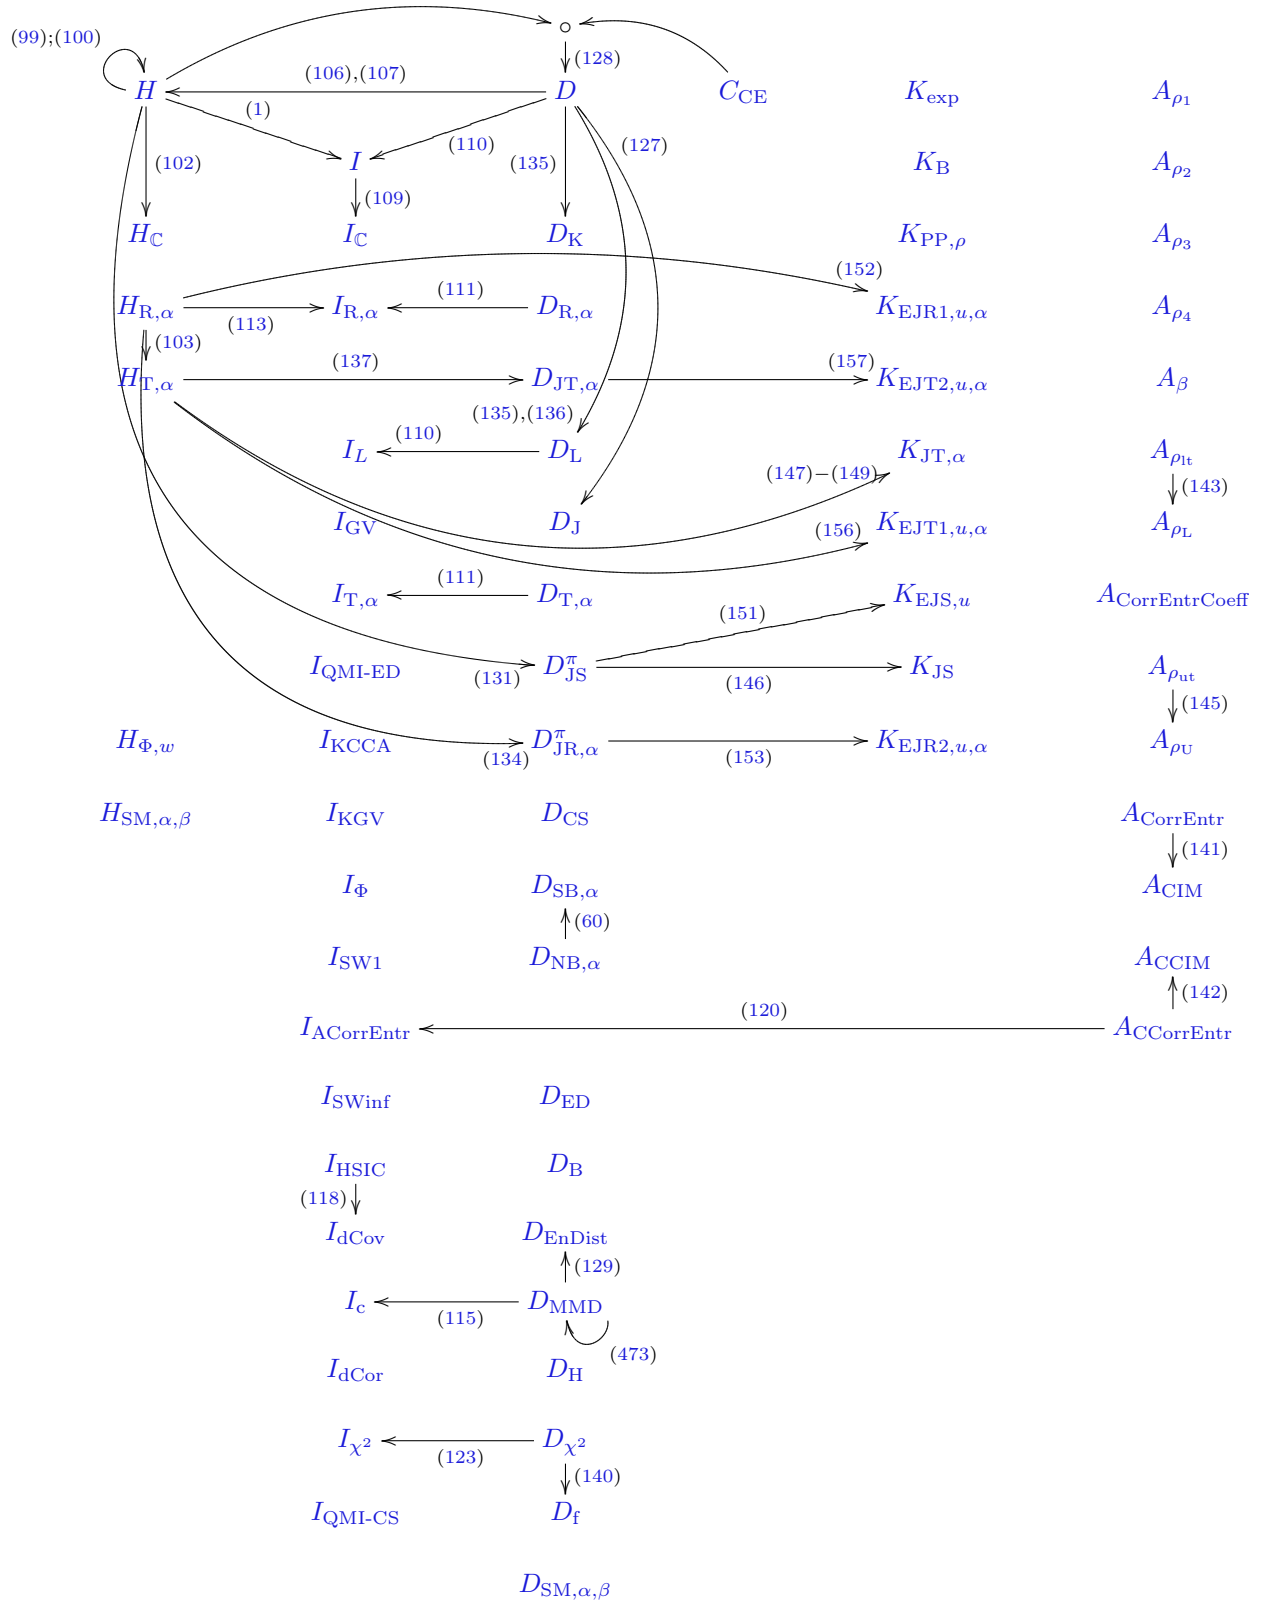 (99);(100)
(128)
H (106),(107) D C_CE K_exp A_ρ1
(1) (110) (127)
(102) I (135) K_B A_ρ2
(109)
H_ℂ I_ℂ D_K K_PP,ρ A_ρ3
(152)
H_R,α (113) I_R,α (111) D_R,α K_EJR1,u,α A_ρ4
(103)
H_T,α (137) D_JT,α (157) K_EJT2,u,α A_β
(135),(136)
I_L (110) D_L K_JT,α A_ρlt
(147)−(149) (143)
I_GV D_J (156) K_EJT1,u,α A_ρL
I_T,α (111) D_T,α K_EJS,u A_CorrEntrCoeff
(151)
I_QMI-ED (131) D^π_JS (146) K_JS A_ρut
(145)
H_Φ,w I_KCCA (134) D^π_JR,α (153) K_EJR2,u,α A_ρU
H_SM,α,β I_KGV D_CS A_CorrEntr
(141)
I_Φ D_SB,α A_CIM
(60)
I_SW1 D_NB,α A_CCIM
(142)
I_ACorrEntr (120) A_CCorrEntr
I_SWinf D_ED
I_HSIC D_B
(118)
I_dCov D_EnDist
(129)
I_c (115) D_MMD
(473)
I_dCor D_H
I_χ² (123) D_χ²
(140)
I_QMI-CS D_f
D_SM,α,β